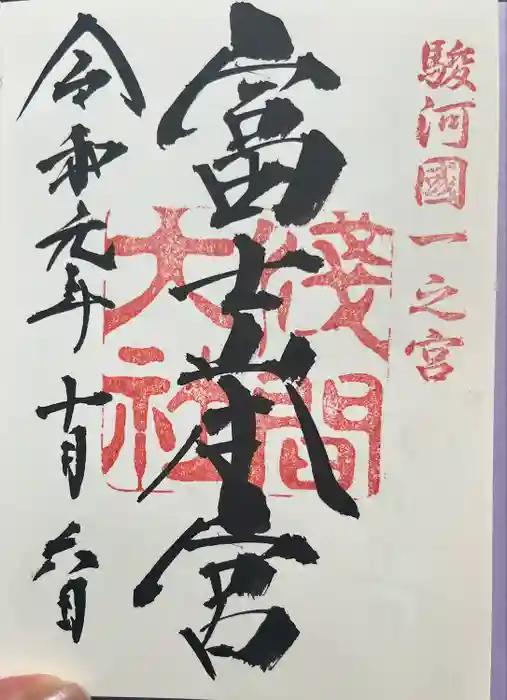 駿河國一之宮
富士山本宮
淺間
大社
令和元年十月六日